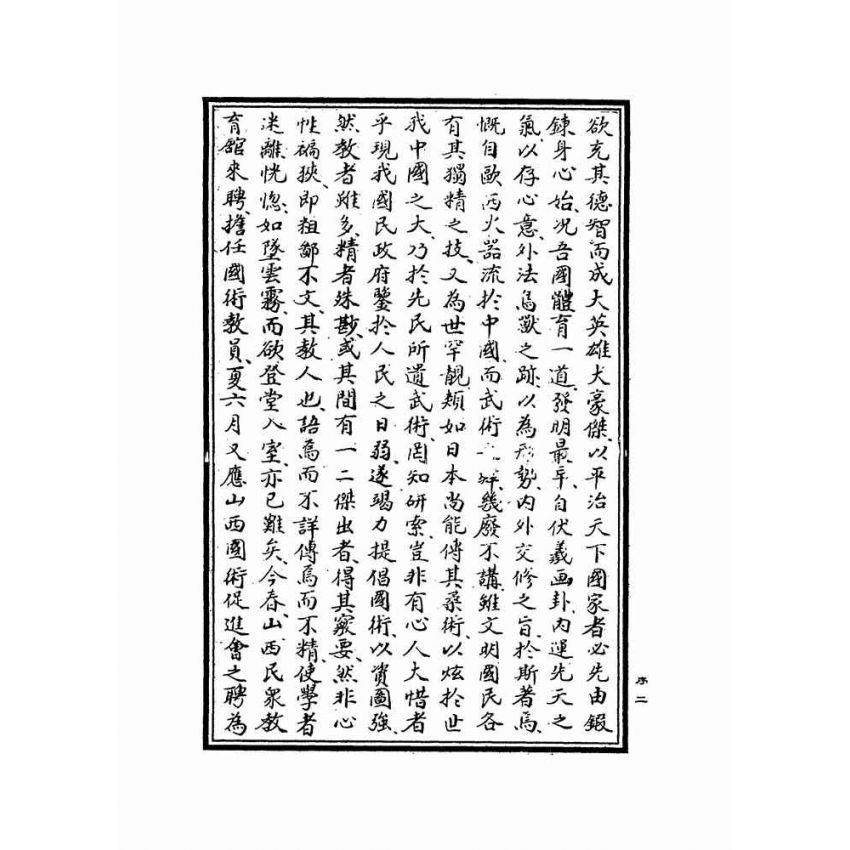 欲充其德智而成大英雄大豪傑、以平治天下國家者必先由鍛
鍊身心始、况吾國體育一道、發明最早、自伏羲画卦、內運先天之
氣、以存心意、外法鳥獸之跡、以為形勢、內外交修之旨、於斯著焉、
慨自歐西火器流於中國、而武術 幾廢不講、雖文明國民各
有其獨精之技、又為世罕覩、頼如日本尚能傳其柔術、以炫於世
我中國之大、乃於先民所遺武術、罔知研索、豈非有心人大惜者
乎、現我國民政府鑒於人民之日弱、遂竭力提倡國術、以資圖強、
然教者雖多、精者殊尠、或其間有一二傑出者、得其竅要、然非心
性褊狹、即粗鄙不文、其教人也、語焉而不詳、傳焉而不精、使學者
迷離恍惚、如墜雲霧、而欲登堂入室、亦已難矣、今春、山西民眾教
育館來聘、擔任國術教員、夏六月又應山西國術促進會之聘、為
序二